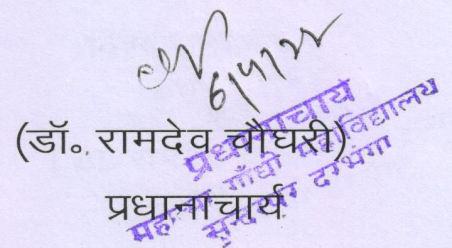 6/5/22
(डॉ. रामदेव चौधरी)
प्रधानाचार्य
प्रधानाचार्य
महात्मा गाँधी महाविद्यालय
सुन्दरपुर दरभंगा